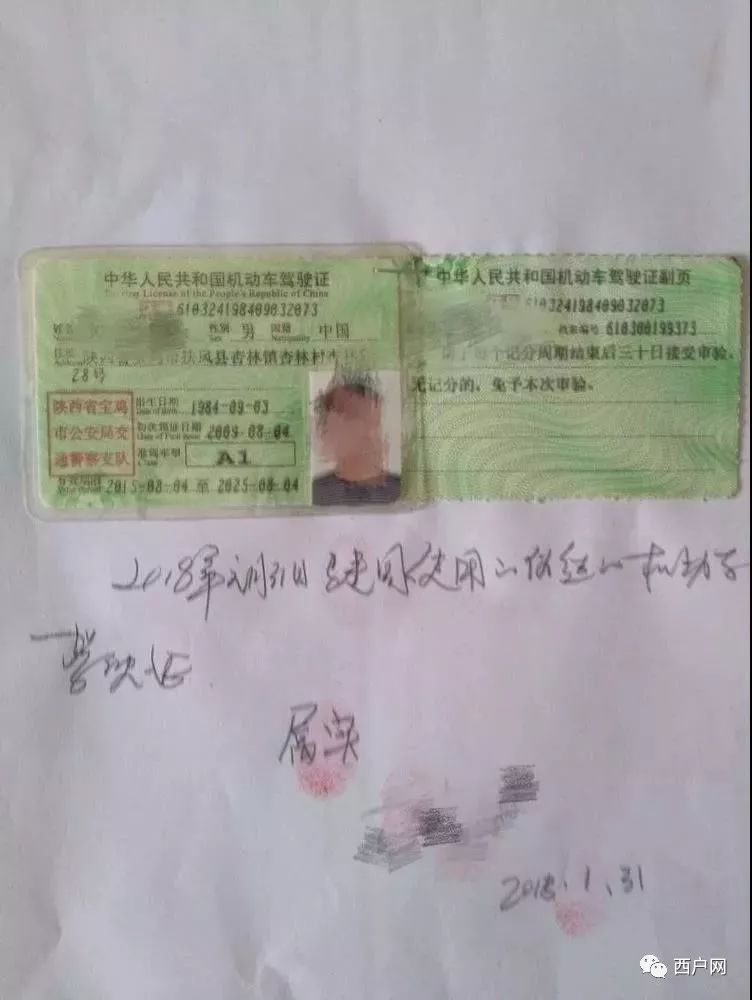 中华人民共和国机动车驾驶证
Driving License of the People's Republic of China
证号 610324198409032073
姓名 性别 男 国籍 中国
Name Sex Nationality
住址 扶风县杏林镇杏林村
28号
陕西省宝鸡
市公安局交
通警察支队
出生日期 1984-09-03
Date of Birth
初次领证日期 2009-08-04
Date of First Issue
准驾车型 A1
Class
有效期限 2015-08-04 至 2025-08-04
Valid Period
中华人民共和国机动车驾驶证副页
610324198409032073
档案编号 610300199373
每个记分周期结束后三十日接受审验。
无记分的、免予本次审验。
2018年元月31日 使用的伪造的机动车
驾驶证
属实
2018.1.31
西户网